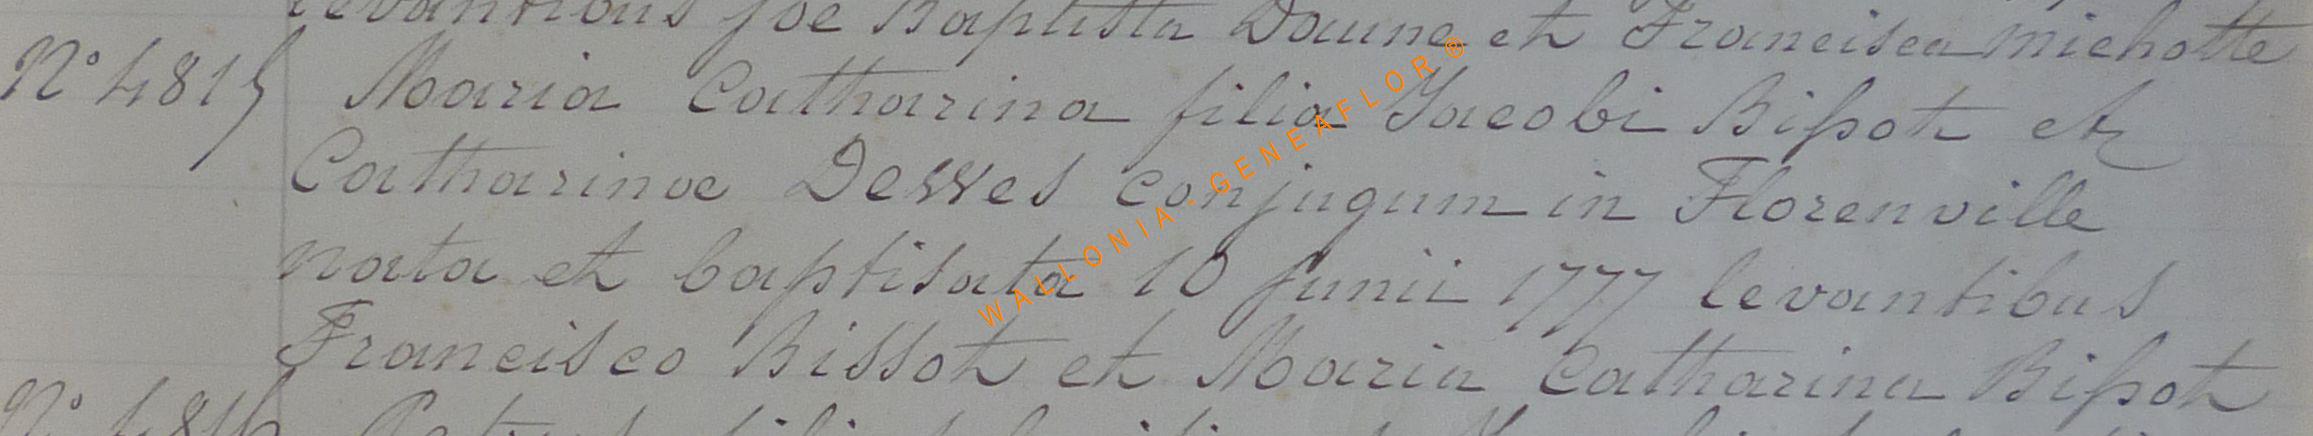 levantibus Joe Baptista Daune et Francisca Michotte
N° 4815 Maria Catharina filia Jacobi Bißot et
Catharinae Desses conjugum in Florenville
nata et baptisata 10 Junii 1777 levantibus
Francisco Bissot et Maria Catharina Bißot
N° 4816
WALLONIA-GENEAFLOR®